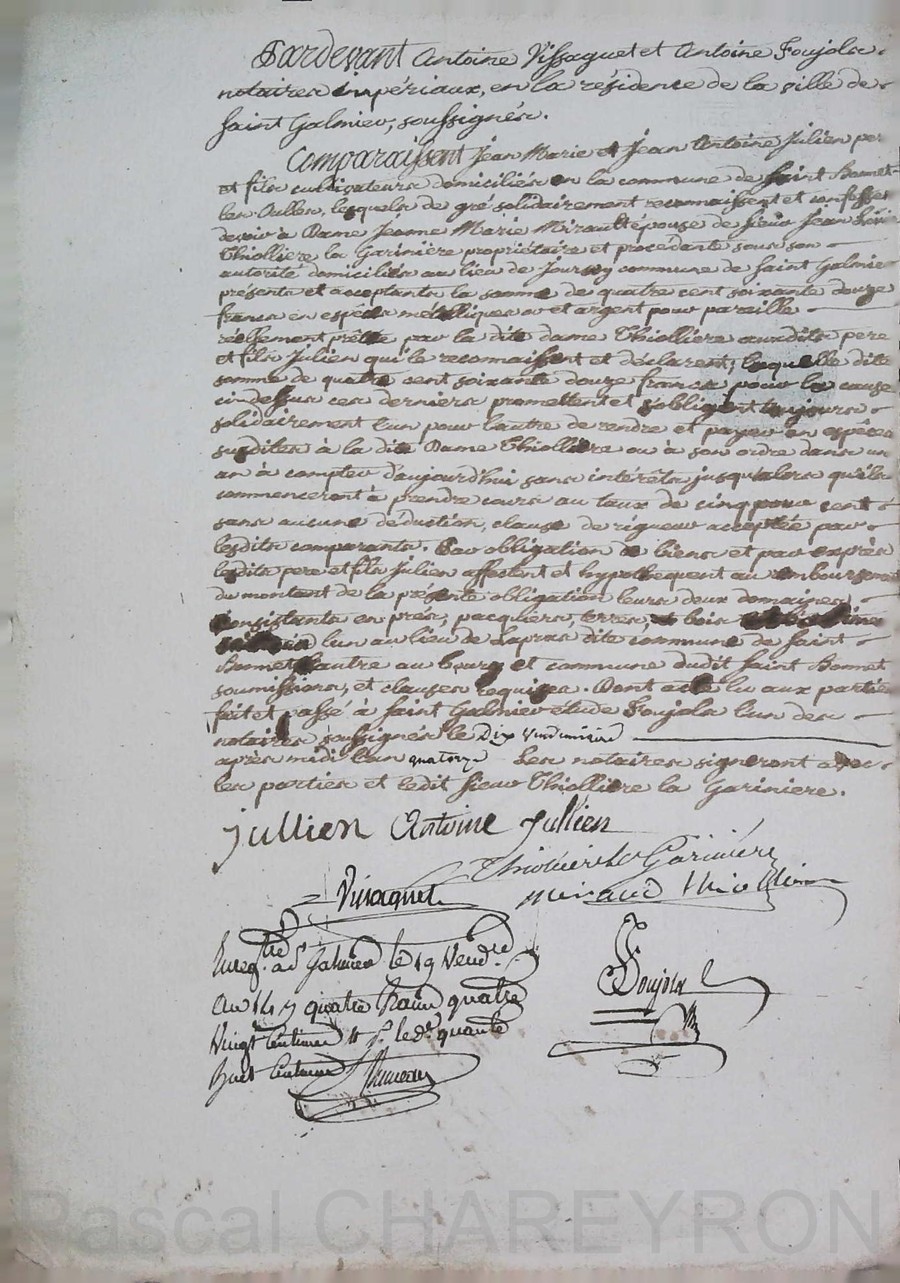 Pardevant Antoine Vissaguet et Antoine Foujols
notaires impériaux, en la résidence de la ville de
Saint Galmier, soussignés.
Comparaissent Jean Marie et Jean Antoine Julien per
et fils cultivateurs domiciliés en la commune de Saint Bonnet
les Oulles, lesquels de gré solidairement reconnaissent et confessent
devoir à Dame Jeanne Marie Mirault épouse de sieur Jean
Thiolliere la Garinière propriétaire et procédante sous son
autorité domiciliés au lieu de Joursey commune de Saint Galmier
présents et acceptants la somme de quatre cent soixante douze
francs en espèces métalliques or et argent pour pareille
réellement prêtée par la dite dame Thiolliere auxdits pere
et fils Julien qui le reconnaissent et déclarent; laquelle dite
somme de quatre cent soixante douze francs pour la cause
cindessus ces derniers promettent et s'obligent toujours
solidairement l'un pour l'autre de rendre et payer en espèces
susdites à la dite Dame Thiolliere ou à son ordre dans un
an à compter d'aujourd'hui sans intérêts jusqu'alors qu'ils
commenceront à prendre cours au taux de cinq pour cent
sans aucune déduction, clause de rigueur acceptée par
lesdits comparants. Par obligation de biens et par exprès
lesdits pere et fils Julien affectent et hypothequent au remboursement
du montant de la présente obligation leurs deux domaines
consistants en prés, pacquiers, terres, bois
l'un au lieu de Lapras dite commune de Saint
Bonnet l'autre au bourg et commune dudit Saint Bonnet
soumissions, et clauses requises. Dont acte lu aux parties
fait et passé à Saint Galmier étude Foujols l'un des
notaires soussignés le Dix Vendémiaire
après midi l'an quatorze Les notaires signeront avec
les parties et ledit sieur Thiolliere la Gariniere.
Jullien Antoine Jullien
Thiolliere la Garinière
Vissaguet miraud thiolliere
Enregtré à St Galmier le 19 Vendre
an 14 quatre francs quatre
Vingt Centimes
huit Centimes
Foujols
Pascal CHAREYRON